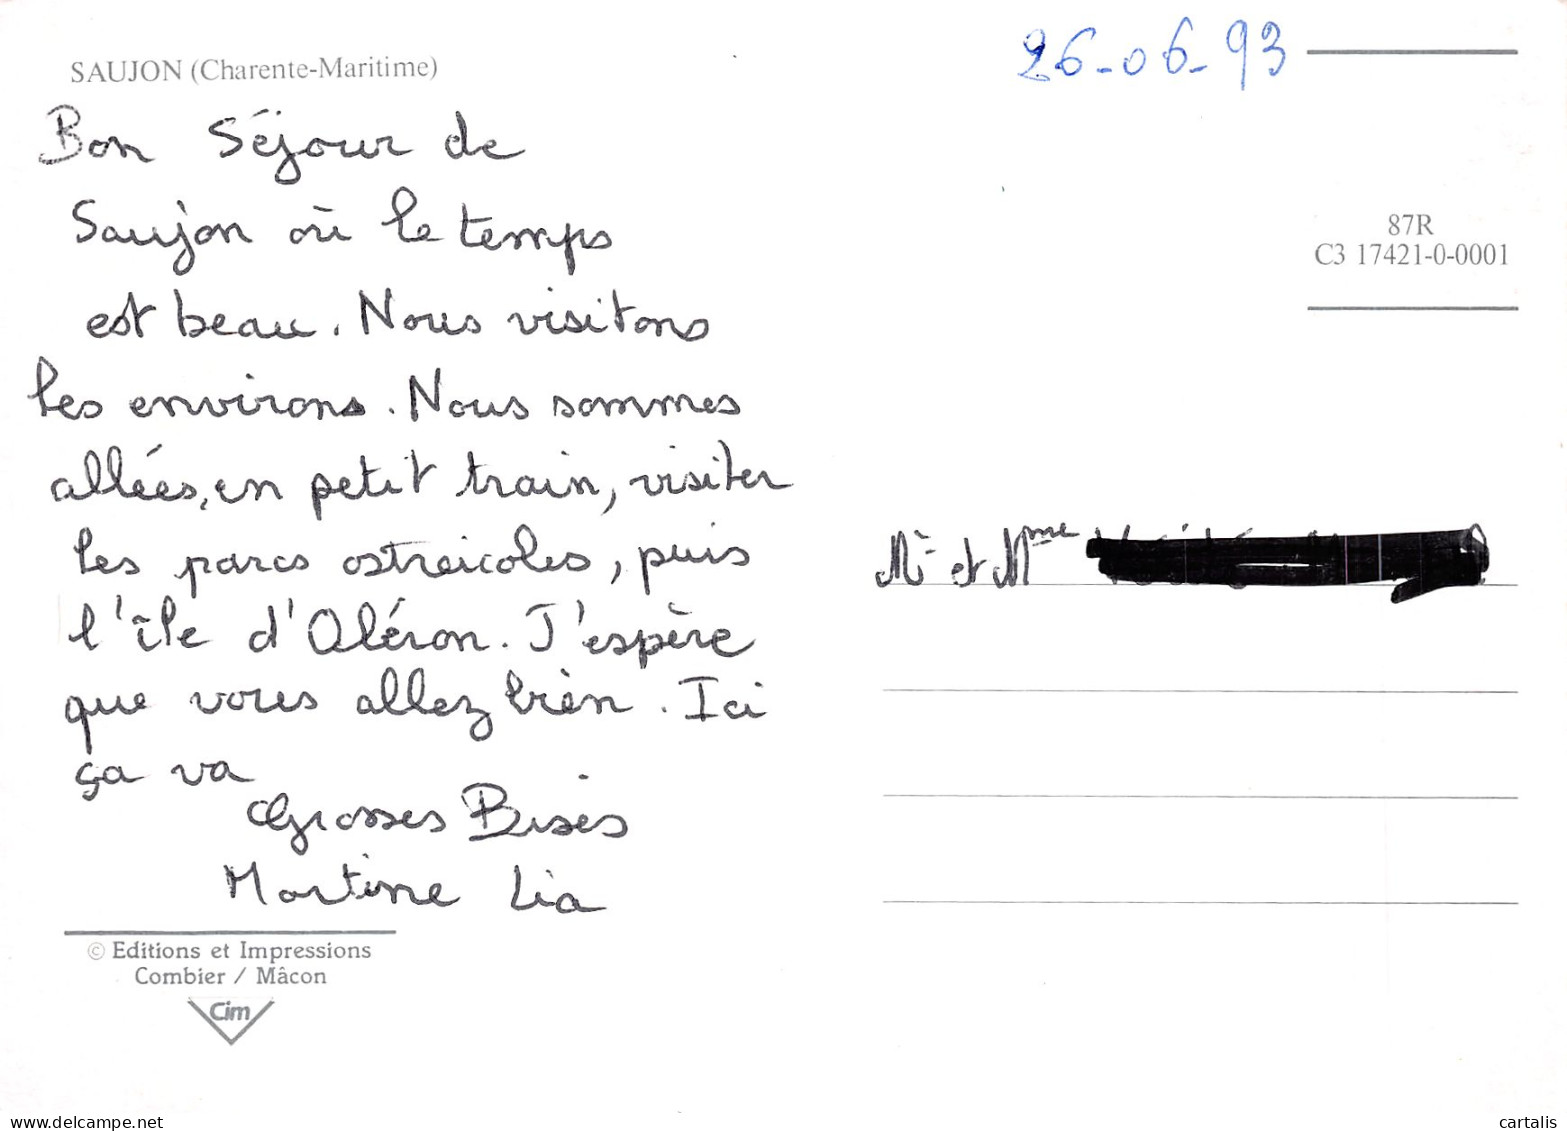 SAUJON (Charente-Maritime)
26-06-93
Bon Séjour de
Saujon où le temps
est beau. Nous visitons
les environs. Nous sommes
allées, en petit train, visiter
les parcs ostreicoles, puis
l'île d'Oléron. J'espère
que vous allez bien. Ici
ça va
Grosses Bises
Martine Lia
© Editions et Impressions
Combier / Mâcon
Cim
87R
C3 17421-0-0001
Mr et Mme
delcampe.net
cartalis